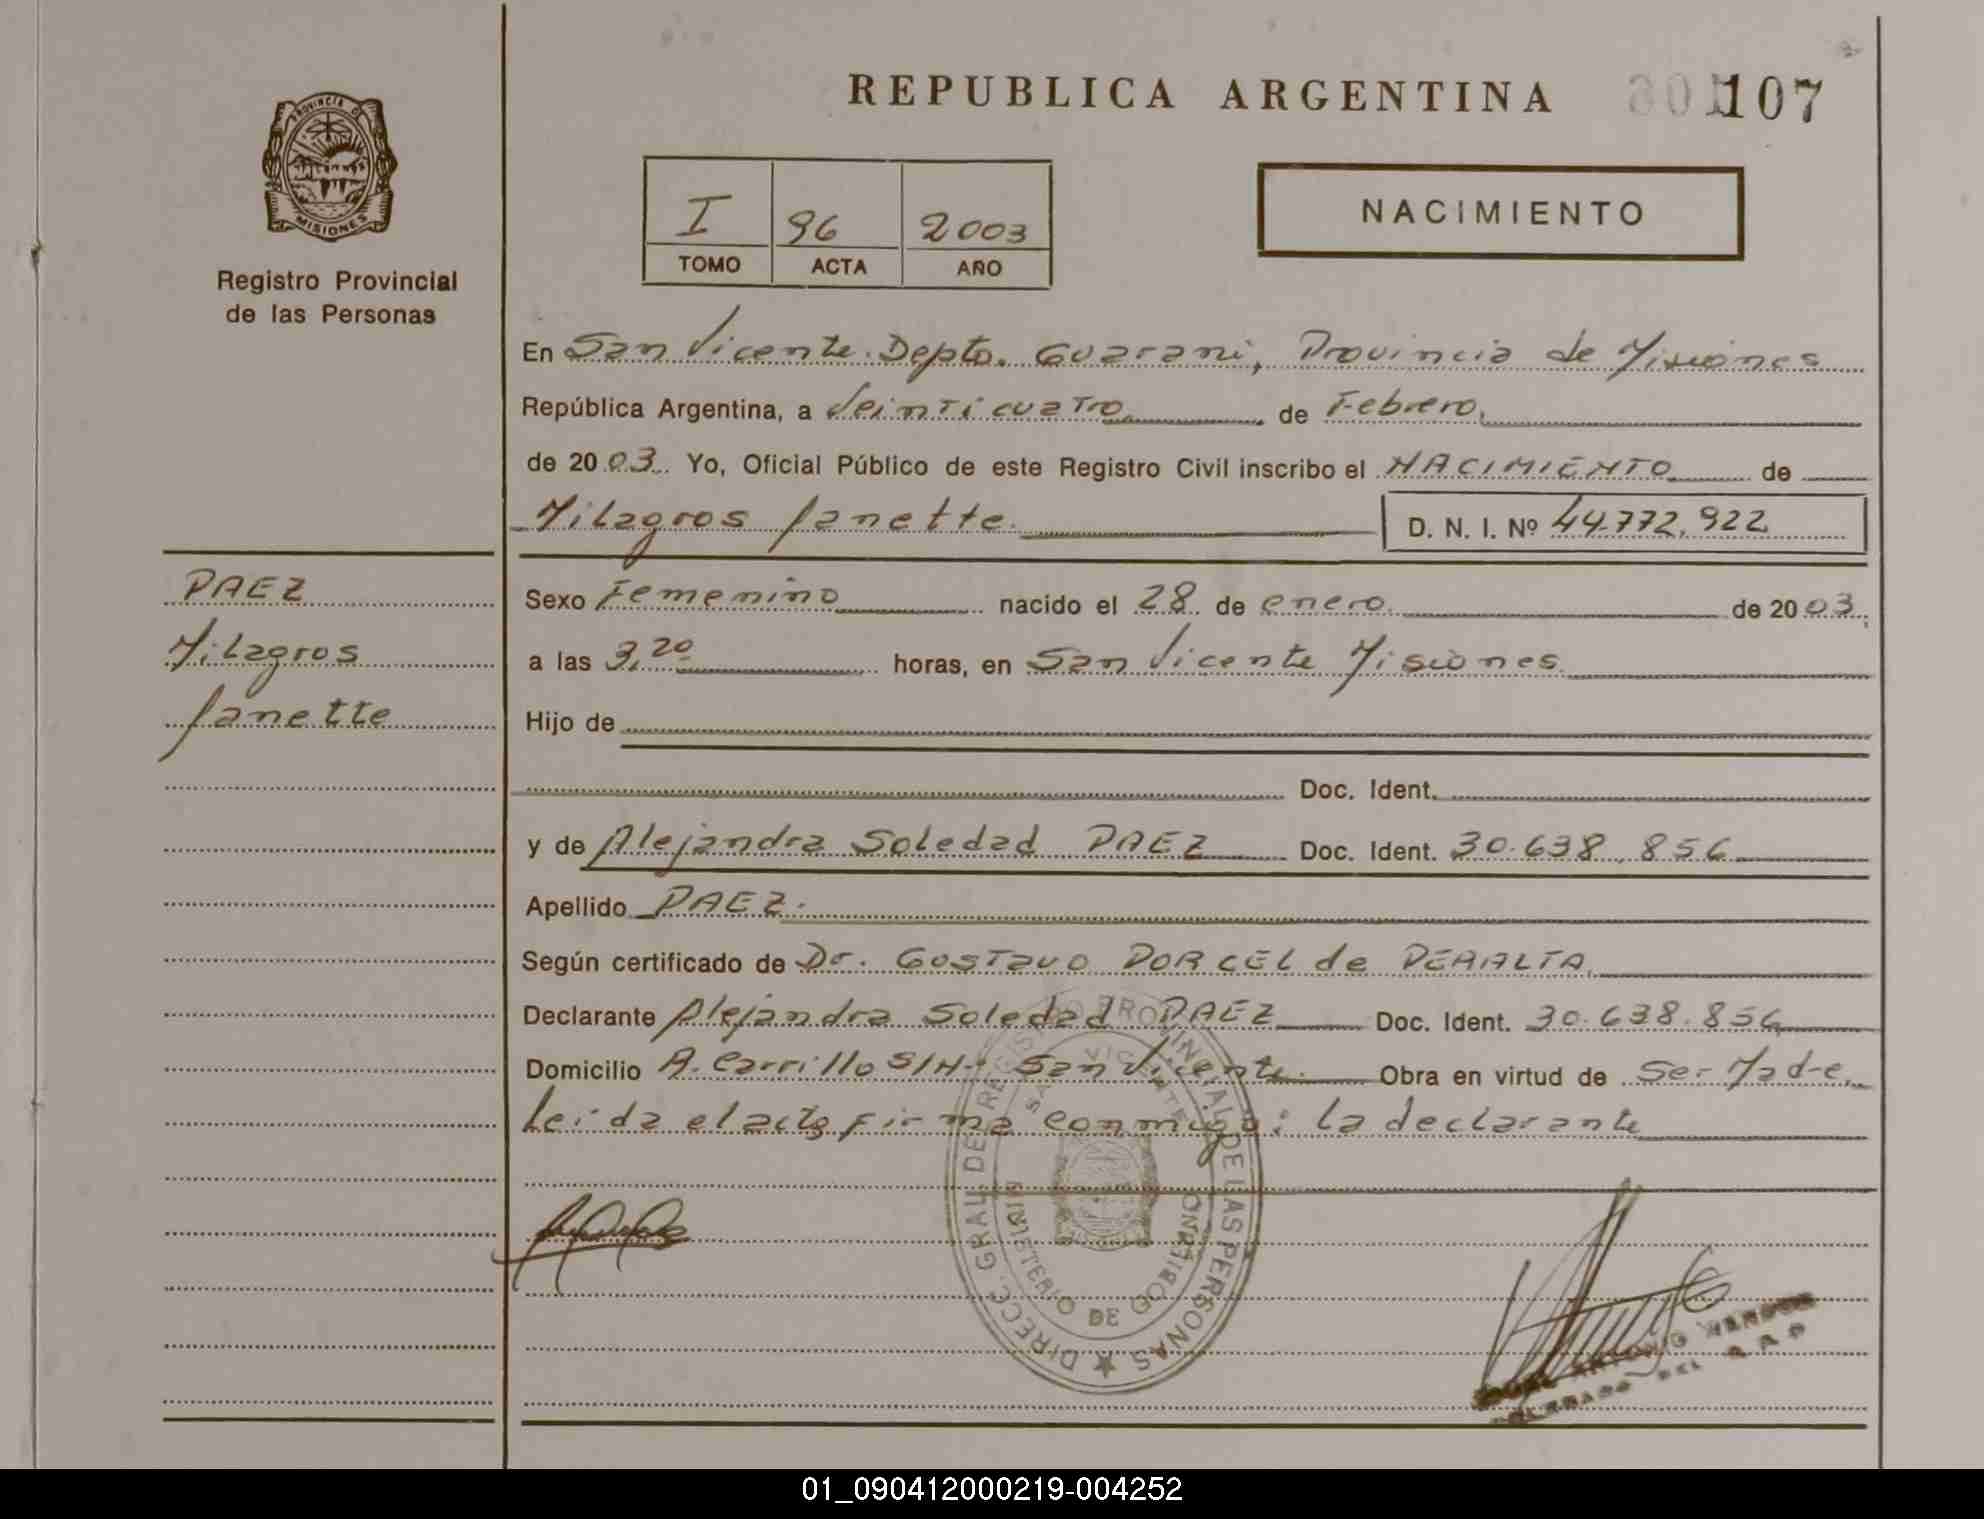 REPUBLICA ARGENTINA 107
PROVINCIA DE MISIONES
Registro Provincial
de las Personas
I 96 2003
TOMO ACTA AÑO
NACIMIENTO
En San Vicente. Depto. Guarani, Provincia de Misiones
República Argentina, a Veinticuatro de Febrero.
de 2003. Yo, Oficial Público de este Registro Civil inscribo el NACIMIENTO de
Milagros Janette. D. N. I. Nº 44.772.922
PAEZ
Milagros
Janette
Sexo Femenino nacido el 28 de enero de 2003.
a las 3,20 horas, en San Vicente Misiones.
Hijo de
Doc. Ident.
y de Alejandra Soledad PAEZ Doc. Ident. 30.638.856
Apellido PAEZ.
Según certificado de Dr. Gustavo DORCEL de PERALTA.
Declarante Alejandra Soledad PAEZ Doc. Ident. 30.638.856
Domicilio A. Carrillo S/N- San Vicente. Obra en virtud de Ser Madre.
Leida el acta firma conmigo: la declarante
DIRECC. GRAL. DE REGISTRO PROVINCIAL DE LAS PERSONAS
SAN VICENTE
MINISTERIO DE GOBIERNO
ANTONIO
DEL
01_090412000219-004252